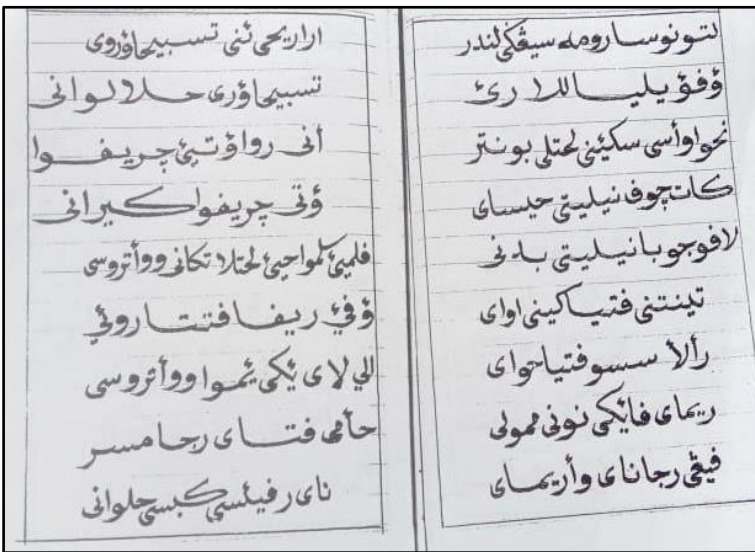 لتونوسارومه سيڤکي لندر
ؤفؤيليا للارئ
نحواوأسى سکيئنى لحتلى بونتر
کات چوف نيليتى حيساى
لافوجوبانيليتى بدنى
تينتنى فتياکينى اواى
رألأ سسو فتياحواى
ريماى فايکى نونى ممولى
فيڤى رجاناى وأريماى
اراريحى ئنى تسبيحاؤروى
تسبيحاؤرى حلالوانى
أنى رواؤتيئ چريفوا
ؤتى چريفواکبيرانى
فلميئ کمواجيئ لحتلاتکانى ووأتروسى
ؤفيئ ريفافتتاروئي
اللي لاى ئکى ئموا ووأتروسى
حأمى فتاى رجا مسر
ناى رفيئسى کبسى حلوانى